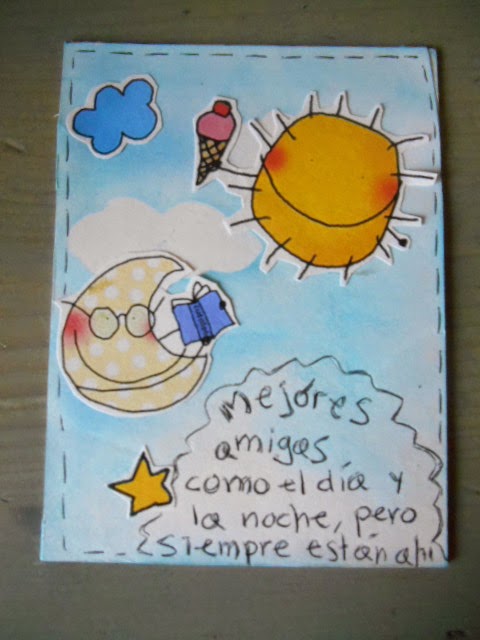 mejores
amigas
como el día y
la noche, pero
siempre están ahí